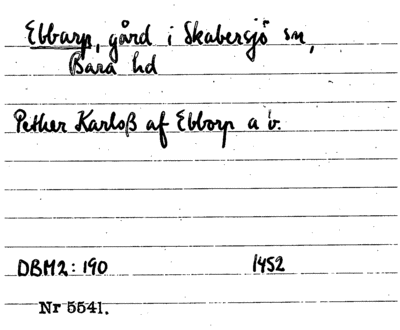 Ebbarp, gård i Skabersjö sn,
Bara hd
Pether Karloß af Ebborp a v.
DBM2: 190 1452
Nr 5541.